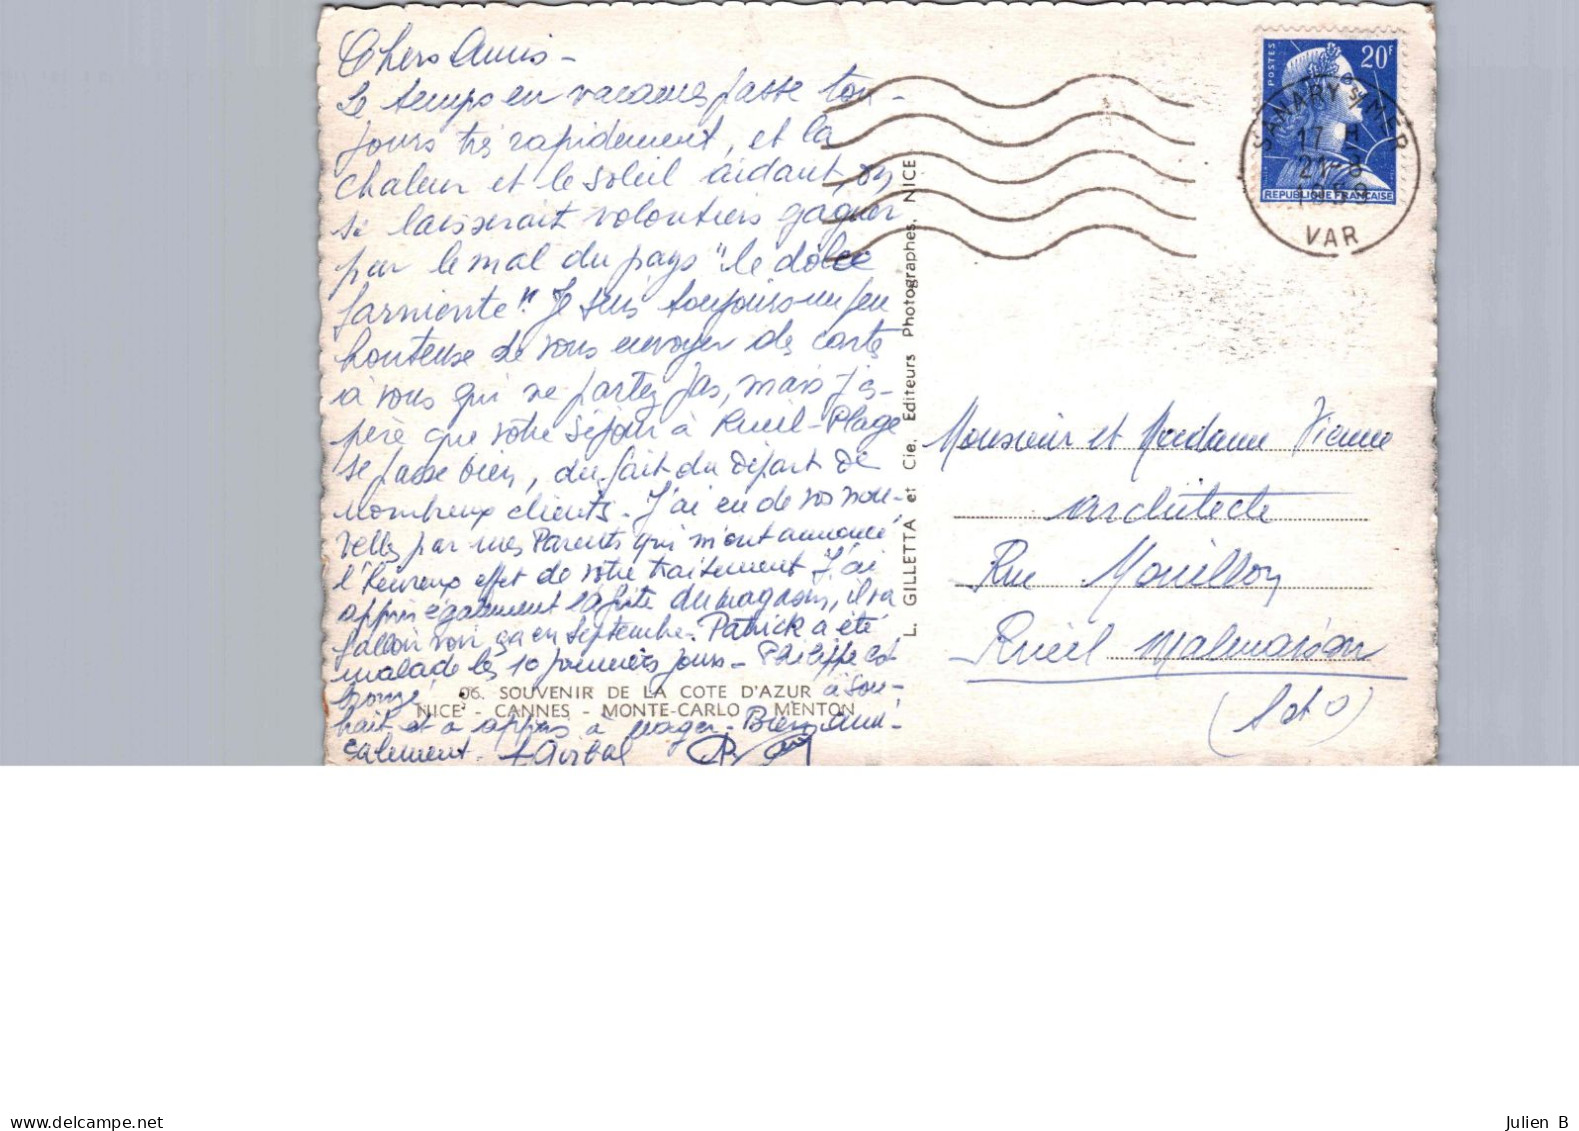 Chers Amis -
Le temps en vacances passe tou-
jours très rapidement, et la
chaleur et le soleil aidant, on
se laisserait volontiers gagner
par le mal du pays "le dolce
farniente". Je suis toujours un peu
honteuse de vous envoyer des cartes
à vous qui ne partez pas, mais j'es-
père que votre séjour à Rueil-Plage
se passe bien, du fait du départ de
nombreux clients. J'ai eu de vos nou-
velles par mes Parents qui m'ont annoncé
l'heureux effet de votre traitement J'ai
appris également la fuite du magasin, il va
falloir voir ça en Septembre. Patrick a été
malade les 10 premiers jours - Philippe est
bronzé à sou-
hait et a appris à nager. Bien ami-
calement.
06. SOUVENIR DE LA COTE D'AZUR
NICE - CANNES - MONTE-CARLO - MENTON
L. GILLETTA et Cie, Editeurs Photographes, NICE
POSTES
20F
REPUBLIQUE FRANÇAISE
SANARY S/ MER
17 H
21-8
VAR
Monsieur et Madame
architecte
Rue
Rueil Malmaison
(S et O)
delcampe.net
Julien B